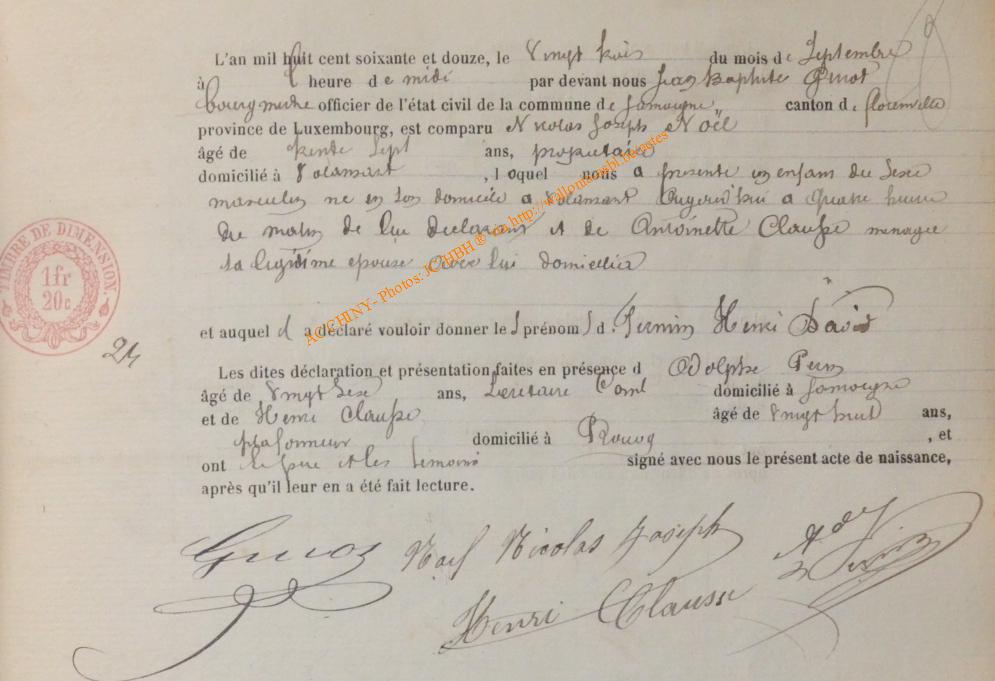 L'an mil huit cent soixante et douze, le Vingt trois du mois de Septembre
à l heure de midi par devant nous Jean Baptiste
bourgmestre officier de l'état civil de la commune de Jamoigne canton de florenville
province de Luxembourg, est comparu Nicolas Joseph Noël
âgé de trente Sept ans, propriétaire
domicilié à Valansart, lequel nous a présenté un enfant du Sexe
masculin né en son domicile a Valansart aujourd'hui a quatre heure
du matin de lui déclarant et de Antoinette Clausse menagere
sa légitime épouse avec lui domiciliée
TIMBRE DE DIMENSION.
1fr
20c
ACCHINY - Photos: JC HBH @ via http://wallonica
et auquel il a déclaré vouloir donner les prénoms d. Firmin Henri David
24
Les dites déclaration et présentation faites en présence d Adolphe
âgé de Vingt Sept ans, Secretaire Coml domicilié à Jamoigne
et de Henri Clausse âgé de Vingt huit ans,
plafonneur domicilié à , et
ont le père et les temoins signé avec nous le présent acte de naissance,
après qu'il leur en a été fait lecture.
Noel Nicolas Joseph
Henri Clausse